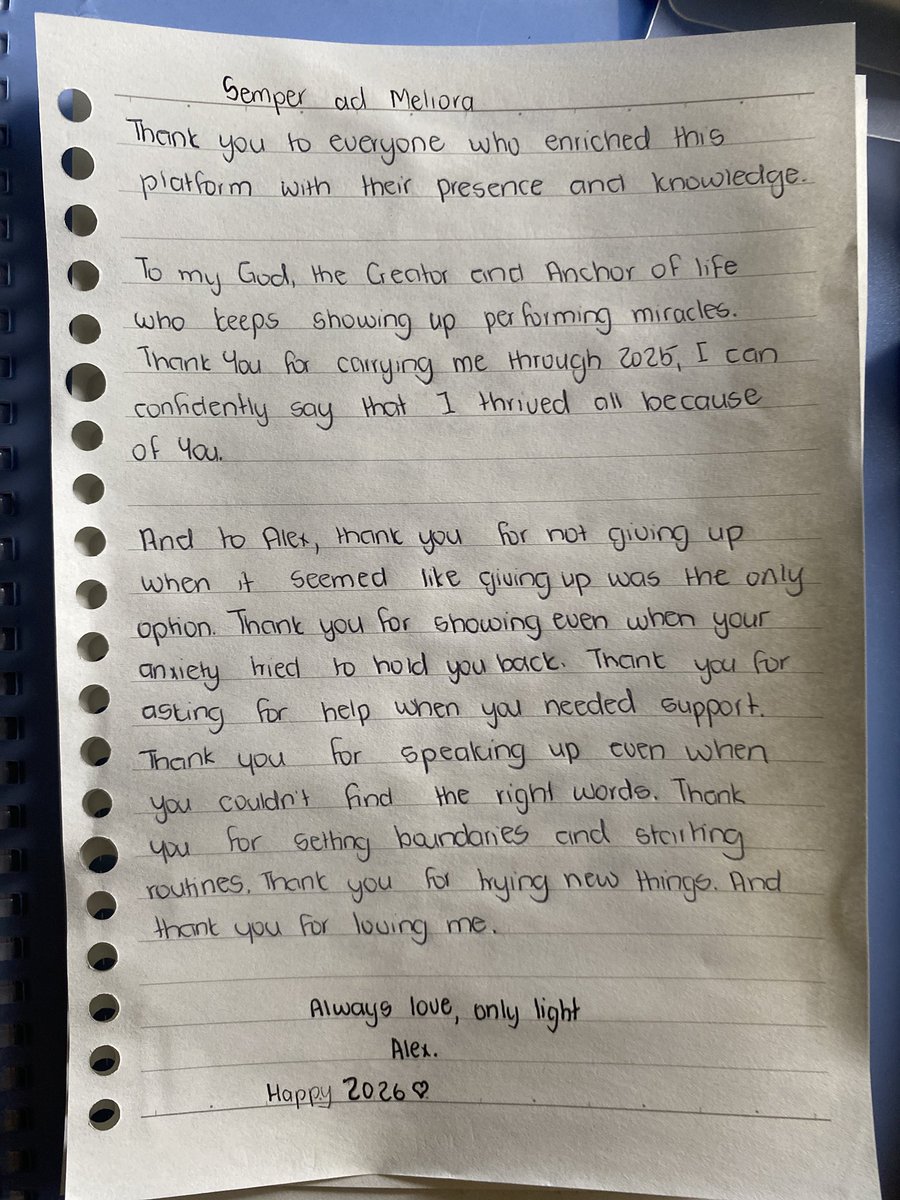 Semper ad Meliora
Thank you to everyone who enriched this
platform with their presence and knowledge.
To my God, the Creator and Anchor of life
who keeps showing up performing miracles.
Thank You for carrying me through 2025, I can
confidently say that I thrived all because
of You.
And to Alex, thank you for not giving up
when it seemed like giving up was the only
option. Thank you for showing even when your
anxiety tried to hold you back. Thank you for
asking for help when you needed support.
Thank you for speaking up even when
you couldn't find the right words. Thank
you for setting boundaries and starting
routines. Thank you for trying new things. And
thank you for loving me.
Always love, only light
Alex.
Happy 2026♡